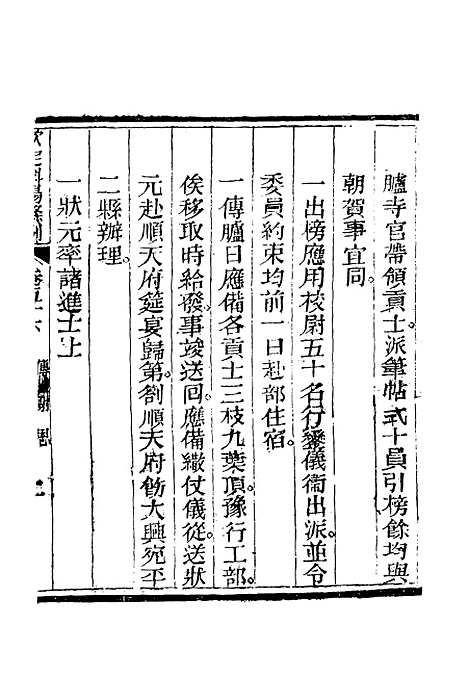 臚寺官帶領貢士。派筆帖式十員引榜。餘均與
朝賀事宜同。
一出榜應用校尉五十名。行鑾儀衞出派。並令
委員約束。均前一日赴部住宿。
一傳臚日應備各貢士三枝九葉頂。豫行工部。
俟移取時給發。事竣送回。應備繖仗儀從。送狀
元赴順天府筵宴歸第。劄順天府飭大興宛平
二縣辦理。
一狀元率諸進士上
欽定科場條例
卷五十六